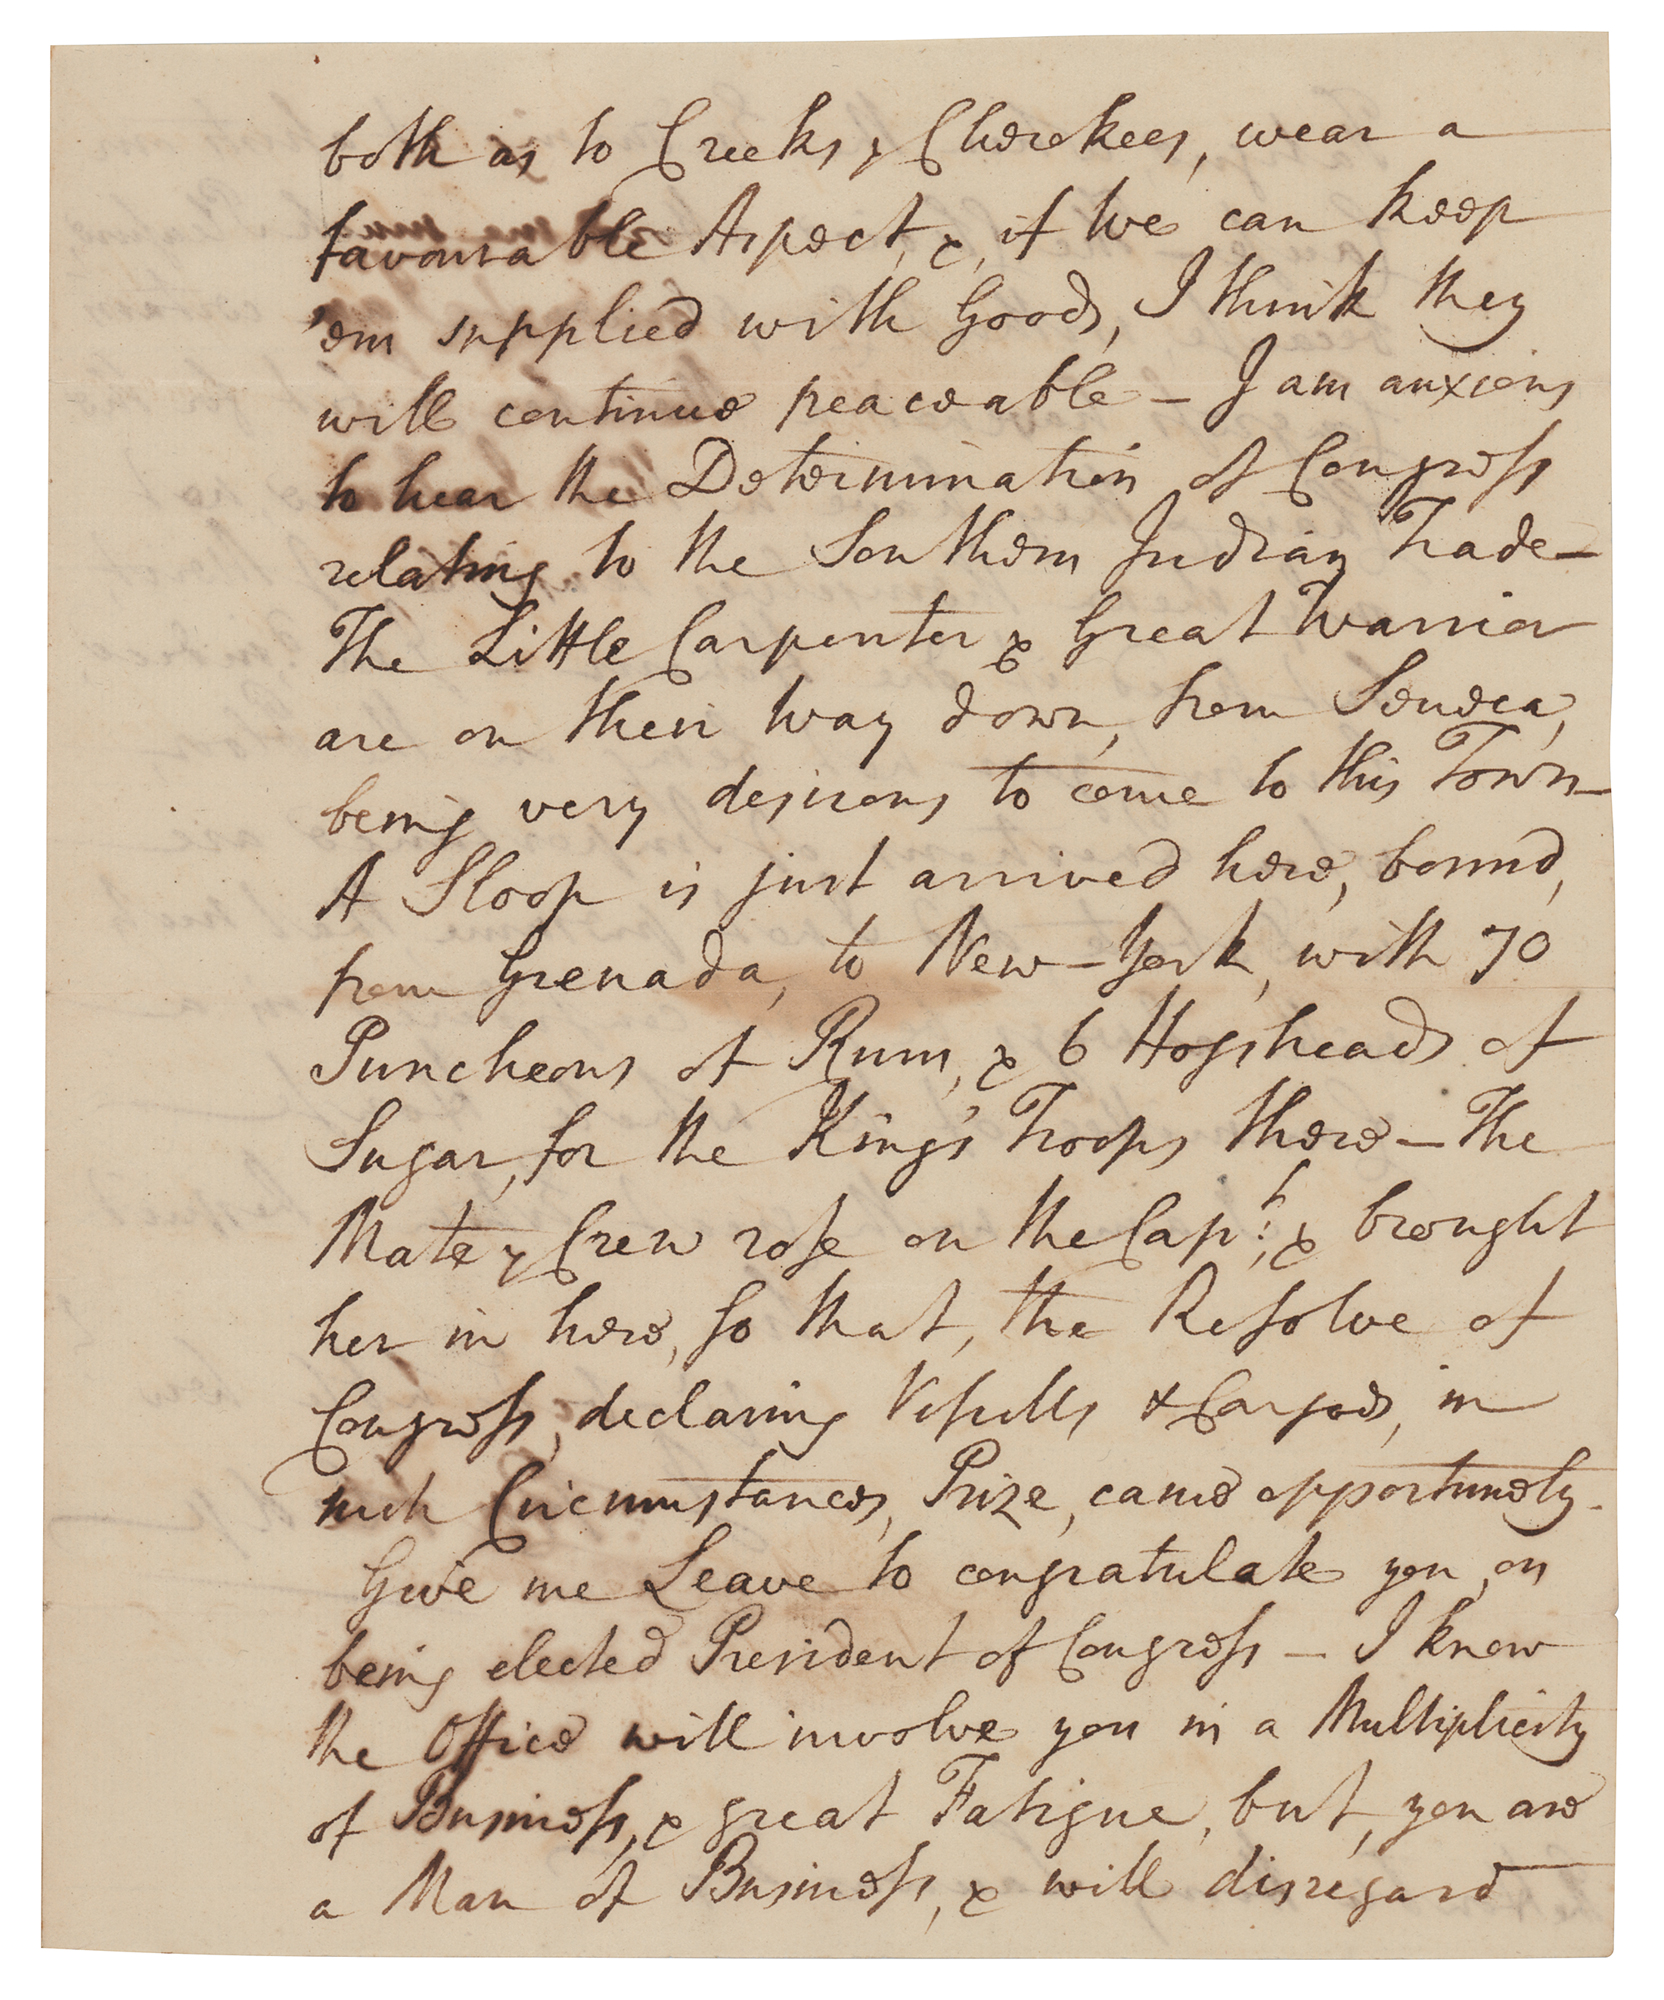 both as to Creeks & Cherokees, wear a
favourable Aspect, &, if we can keep
'em supplied with Goods, I think they
will continue peaceable – I am anxious
to hear the Determination of Congress
relating to the Southern Indian Trade –
The Little Carpenter & Great Warrior
are on their Way down, from Seneca,
being very desirous to come to this Town –
A Sloop is just arrived here, bound,
from Grenada, to New-York, with 70
Puncheons of Rum, & 6 Hogsheads of
Sugar, for the King's Troops there – The
Mate & Crew rose on the Capt:, & brought
her in here, so that, the Resolve of
Congress, declaring Vessells & Cargoes, in
such Circumstances, Prize, came opportunely.
Give me Leave to congratulate you, on
being elected President of Congress – I know
the Office will involve you in a Multiplicity
of Business, & great Fatigue, but, you are
a Man of Business, & will disregard